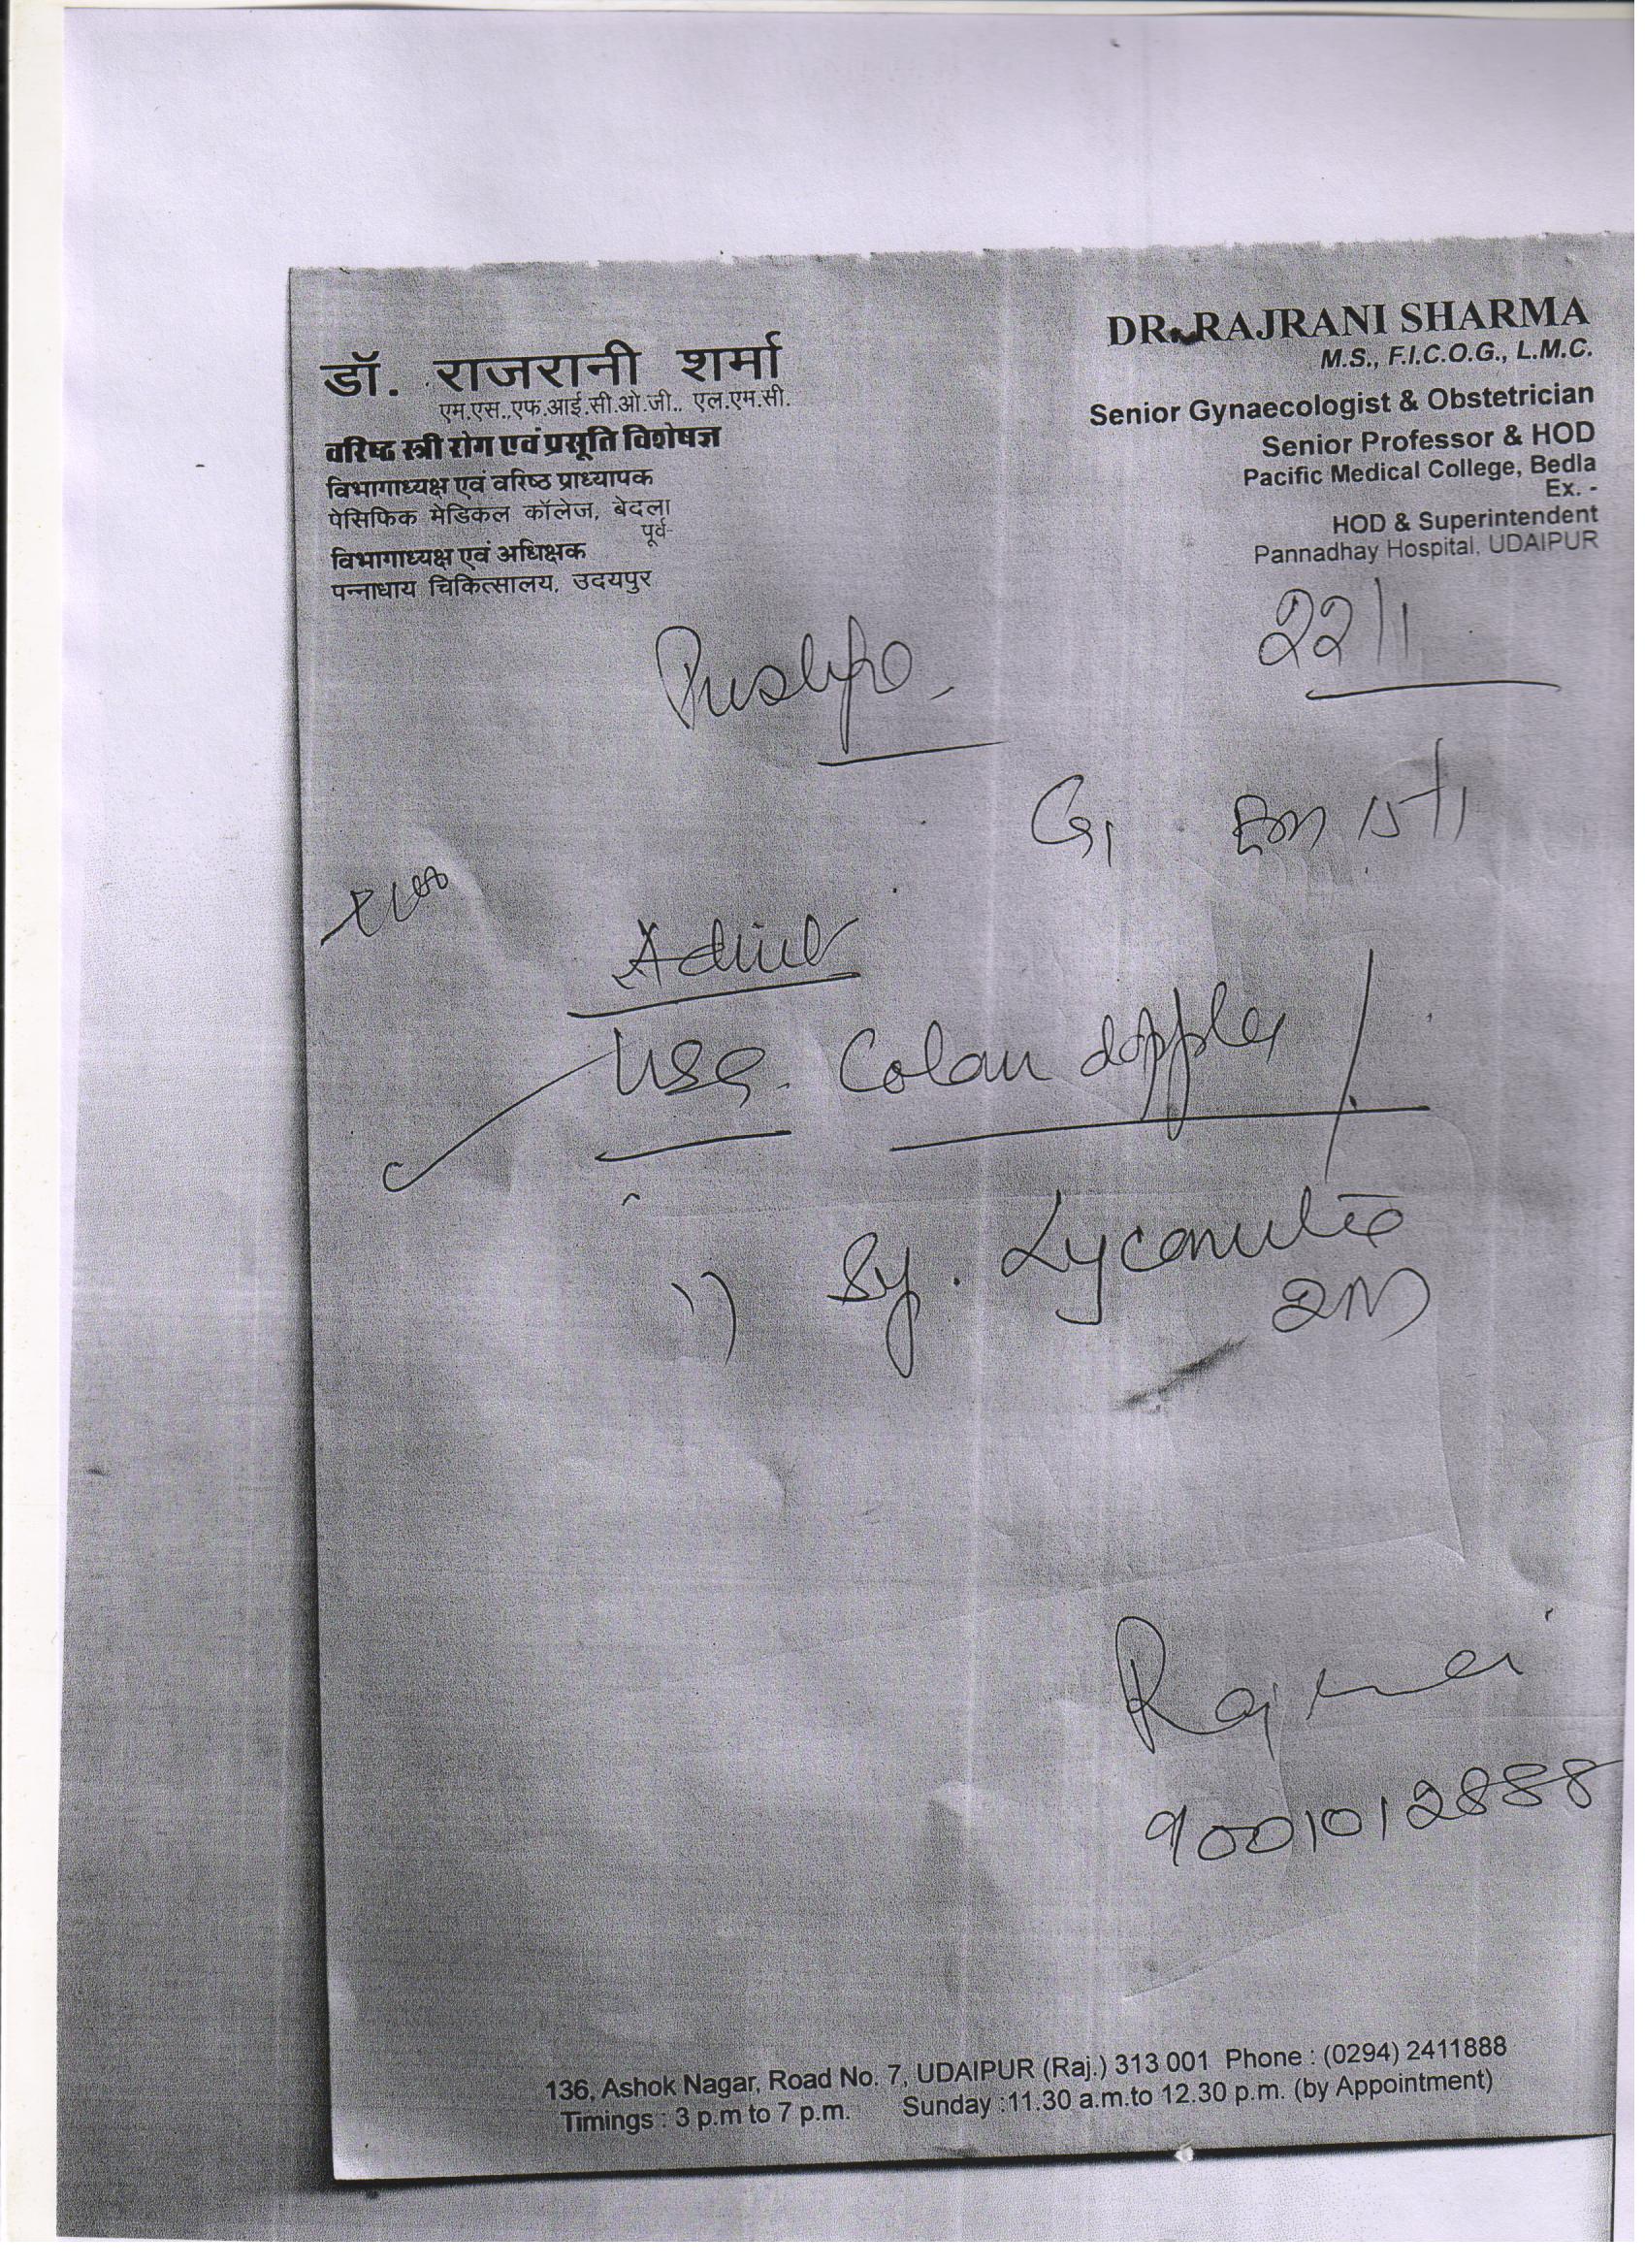 डॉ. राजरानी शर्मा
एम.एस.,एफ.आई.सी.ओ.जी., एल.एम.सी.
वरिष्ठ स्त्री रोग एवं प्रसूति विशेषज्ञ
विभागाध्यक्ष एवं वरिष्ठ प्राध्यापक
पेसिफिक मेडिकल कॉलेज, बेदला
पूर्व-
विभागाध्यक्ष एवं अधिक्षक
पन्नाधाय चिकित्सालय, उदयपुर
DR. RAJRANI SHARMA
M.S., F.I.C.O.G., L.M.C.
Senior Gynaecologist & Obstetrician
Senior Professor & HOD
Pacific Medical College, Bedla
Ex. -
HOD & Superintendent
Pannadhay Hospital, UDAIPUR
22/1
Pushpa
G1 15/1
Admit
USG. Colour doppler
1) Sy. 2M
9001012888
136, Ashok Nagar, Road No. 7, UDAIPUR (Raj.) 313 001 Phone : (0294) 2411888
Timings : 3 p.m to 7 p.m. Sunday :11.30 a.m.to 12.30 p.m. (by Appointment)